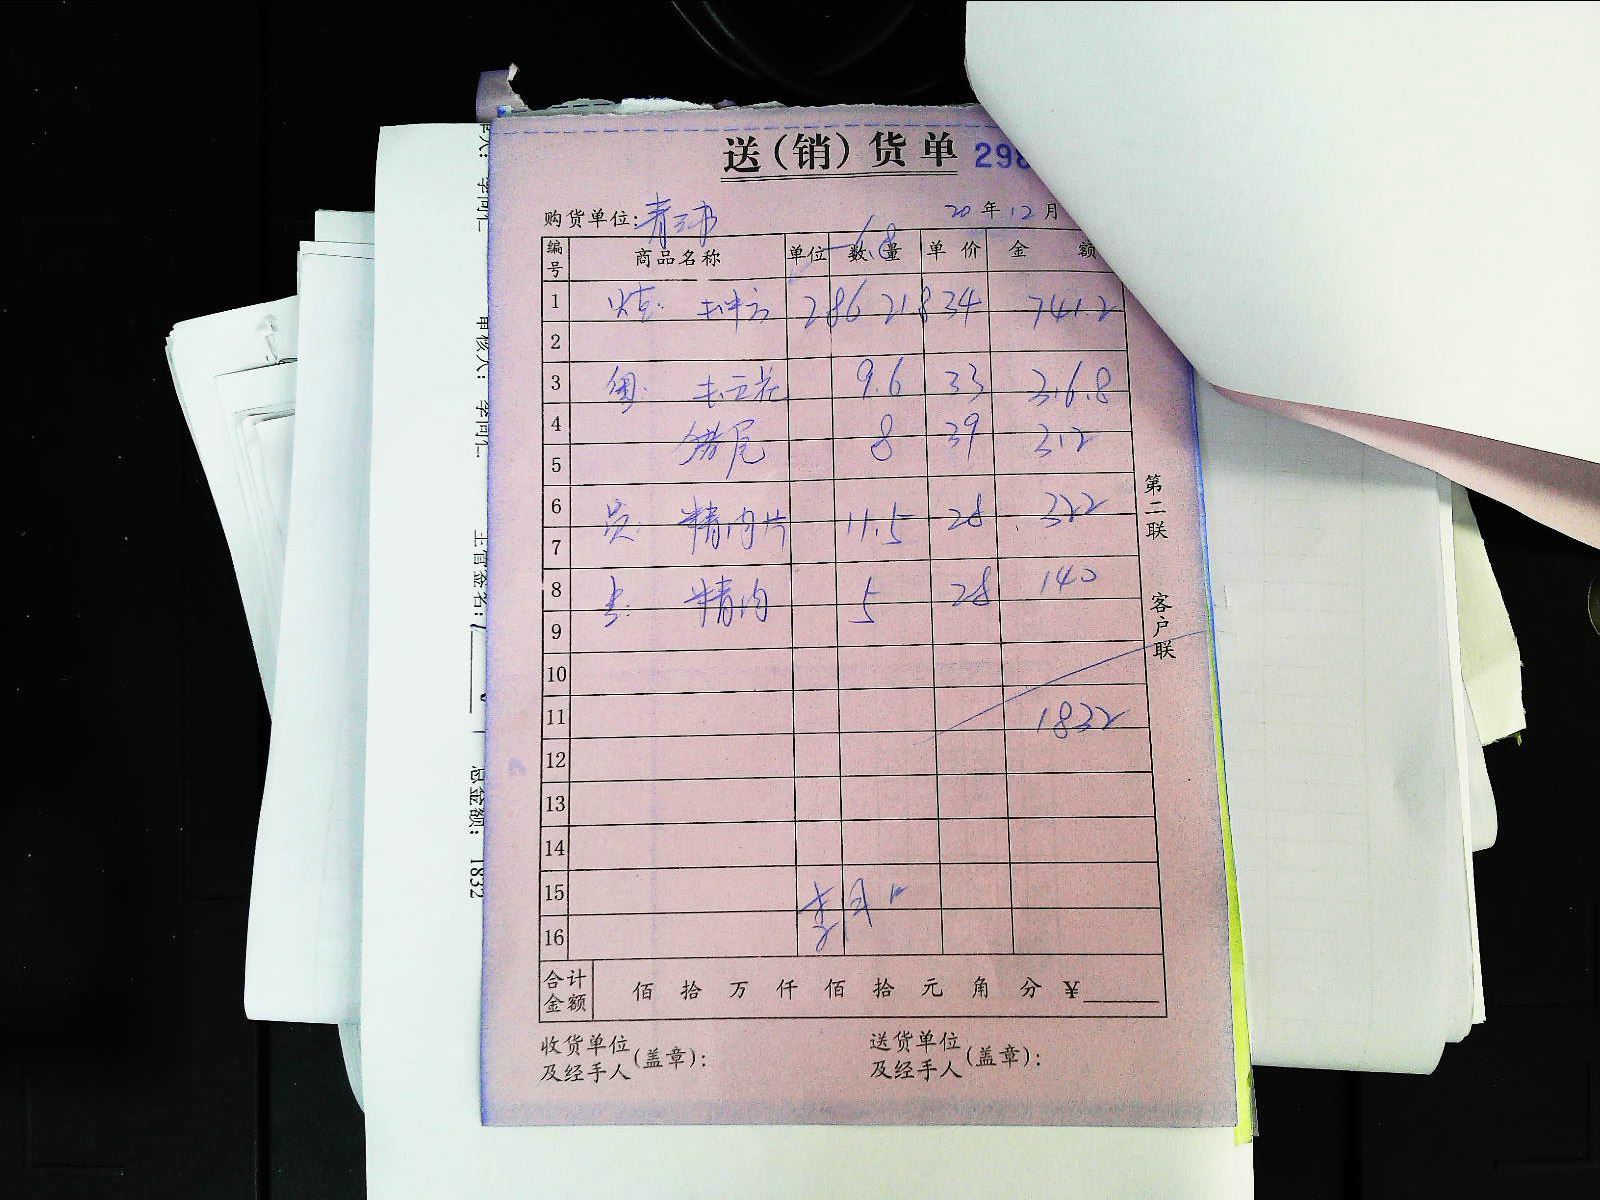 送(销)货单 298
购货单位:
20年12月
编号 商品名称 单位 数量 单价 金额
68
1 286 21.8 34 741.2
2
3 9.6 33 3.6.8
4 猪尾 8 39 312
5
6 精肉片 11.5 28 322
7
8 精肉 5 28 140
9
10
11 1832
12
13
14
15
16
合计金额 佰 拾 万 仟 佰 拾 元 角 分 ¥
收货单位及经手人(盖章):
送货单位及经手人(盖章):
第二联 客户联
审核人:
主管签名:
总金额: 1832